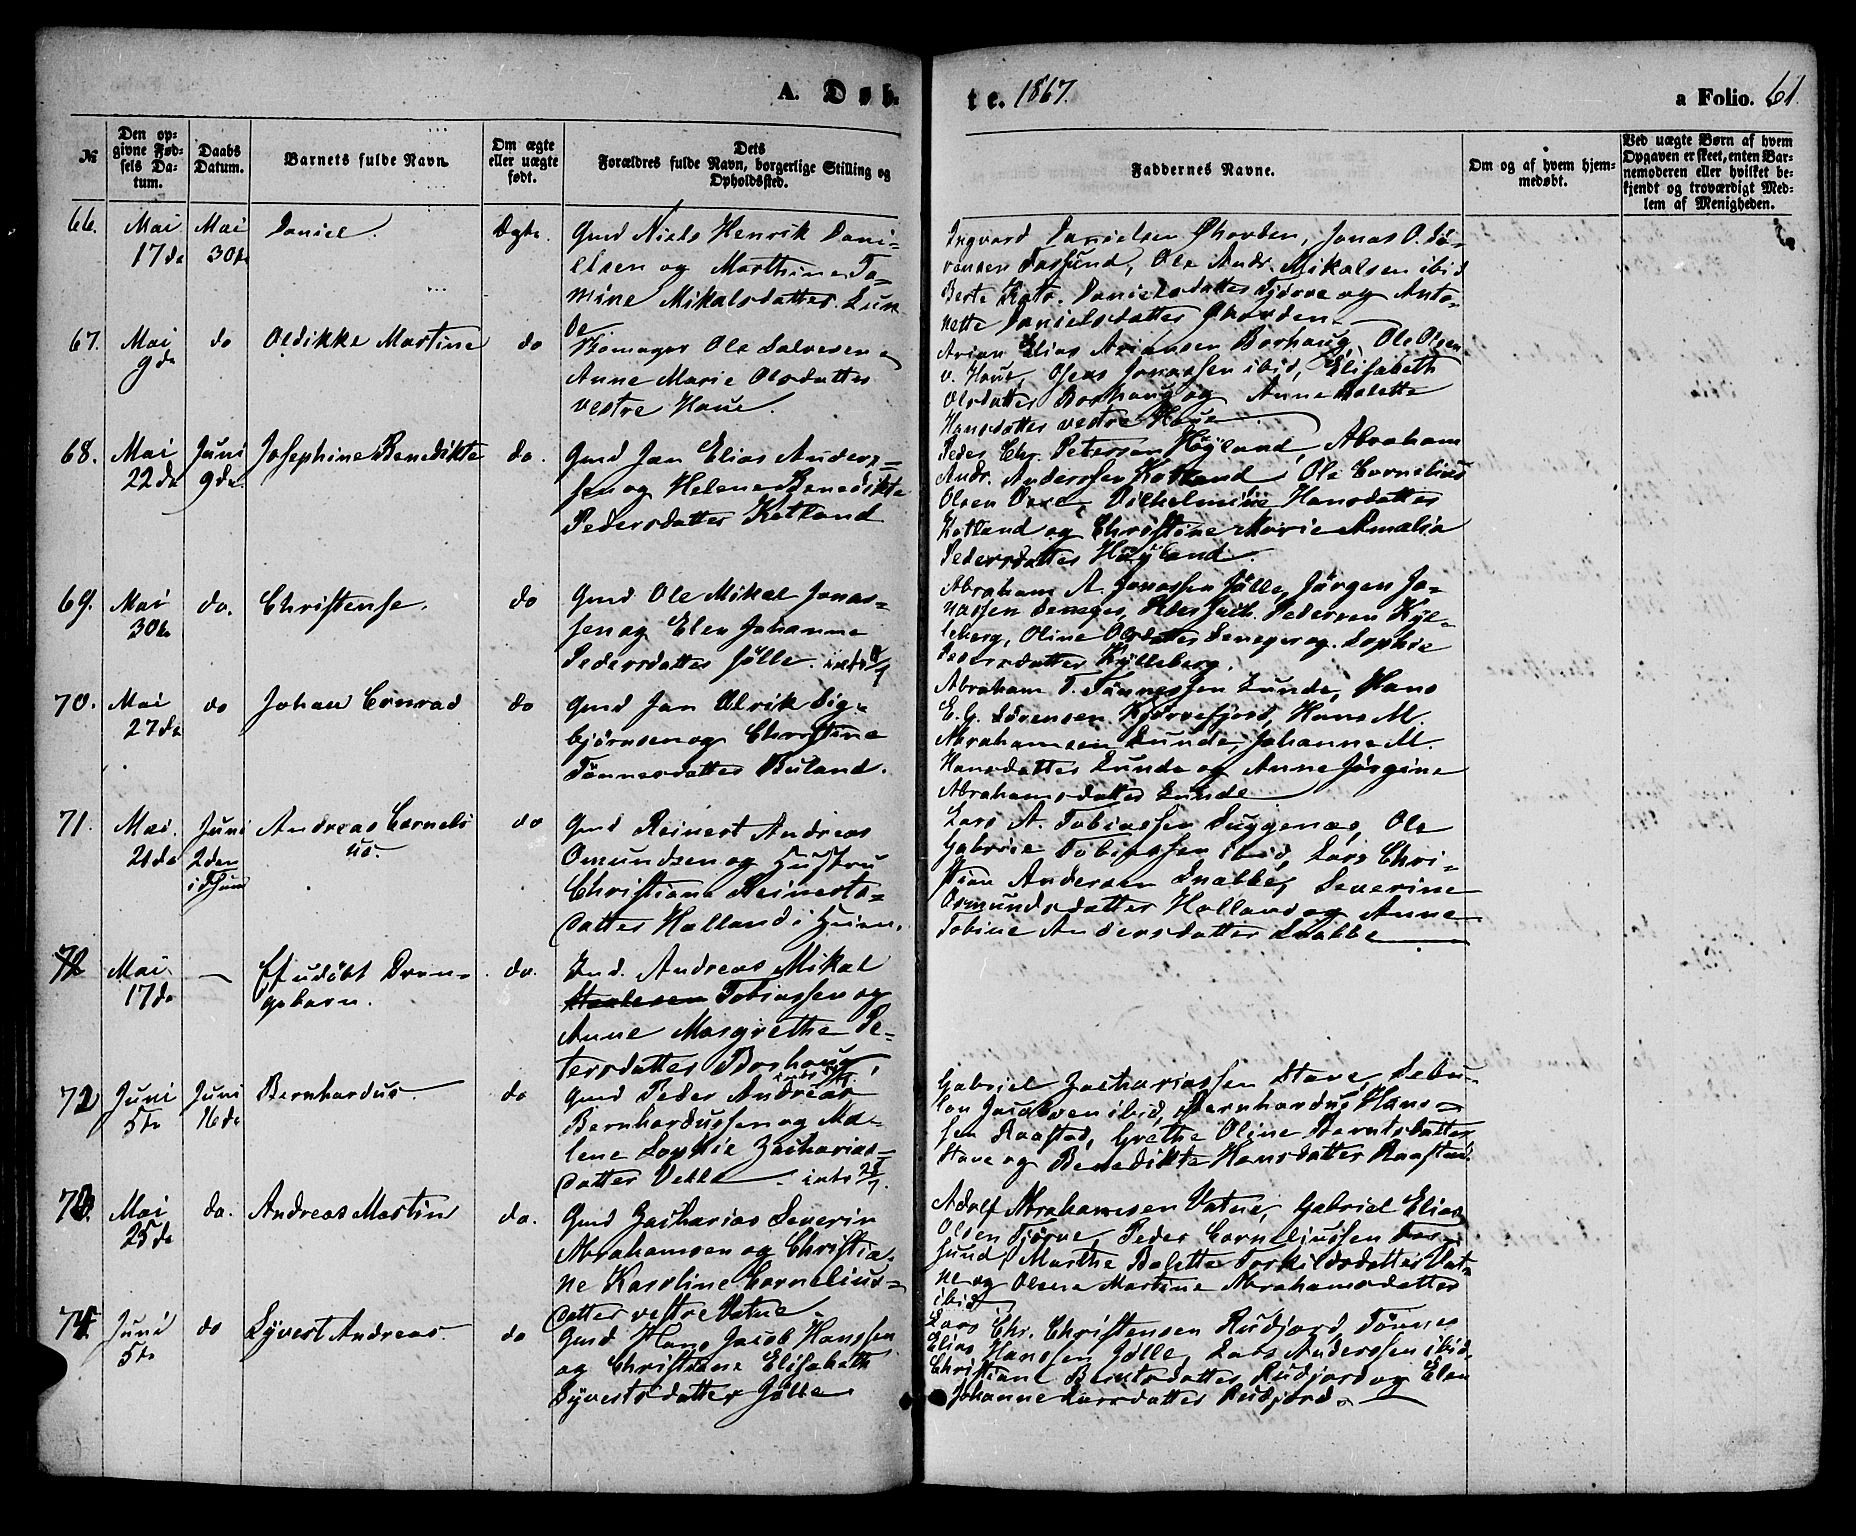 A. Døb-
te. 1867.
a Folio. 61.
№
Den op-
givne Fød-
sels Da-
tum.
Daabs
Datum.
Barnets fulde Navn.
Om ægte
eller uægte
født.
Dets
Forældres fulde Navn, borgerlige Stilling og
Opholdssted.
Faddernes Navne.
Om og af hvem hjem-
medøbt.
Ved uægte Børn af hvem
Opgaven er skeet, enten Bar-
nemoderen eller hvilket be-
kjendt og troværdigt Med-
lem af Menigheden.
66. Mai Mai Daniel. Ægte. Gmd Niels Henrik Dani-
17de 30te elsen og Marthine To-
mine Mikalsdatter Lun
de
Ingvard Danielsen Ø, Jonas O. Sø-
rensen Farsund, Ole Andr. Mikalsen ibid
Berte Kato. Danielsdatter Tjørve og Anto-
nette Danielsdatter
67. Mai do Oldikke Martine do Ole Salvesen og
9de Anne Marie Olsdatter
vestre Haue.
Arian Elias Ariansen Borhaug, Ole Olsen
v. Haue, Oseas Jonassen ibid, Elisabeth
Olsdatter Borhaug og Anne Malette
Hansdatter vestre Haue
68. Mai Juni Josephine Benedikte do. Gmd Jan Elias Anders-
22de 9de. sen og Helene Benedikte
Pedersdatter Ketland
Peder Chr. Petersen Høyland, Abraham
Andr. Anderssen Ketland, Ole Cornelius
Olsen Ore, Vilhelmine Hansdatter
Ketland og Christine Marie Amalia
Pedersdatter Høyland.
69. Mai do. Christense. do Gmd Ole Mikal Jonas-
30te sen og Elen Johanne
Pedersdatter Jølle.
Abraham A. Jonassen Jølle, Jørgen Jo-
nassen Peder Pedersen Kyl-
leberg, Oline Olsdatter og Sophie
Pedersdatter Kylleberg.
70. Mai do Johan Conrad do Gmd Jan Ulrik Sig-
27de bjørnsen og Christine
Tønnesdatter Buland.
Abraham T. Tønnessen Lunde, Hans
E. G. Sørensen Kjørrefjord, Hans M.
Abrahamsen Lunde, Johanne M.
Hansdatter Lunde og Anne Jørgine
Abrahamsdatter Lunde
71. Mai. Juni Andreas Corneli do Gmd Reinert Andreas
21de 2den us. Omundsen og Hustru
Christiane Reinerts-
datter Halland i
Lars A. Tobiassen Suggenes, Ole
Gabriel Tobiassen ibid, Lars Chri-
stian Andersen Snabbe, Severine
Osmundsdatter Halland og Anne
Tobine Andersdatter Snabbe
72 Mai — Et udøbt Dren- do. Andreas Mikal
17de gebarn. Tobiassen og
Anne Margrethe Pe-
tersdatter Borhaug.
72 Juni Juni Bernhardus. do Gmd Peder Andreas
5te 16de Bernhardussen og Ma-
lene Sophie Zacharias-
datter Velle.
Gabriel Zachariassen Stave,
Jacobsen ibid, Bernhardus Hans-
sen Raastad, Grethe Oline Berntsdatter
Stave og Benedikte Hansdatter Raastad.
73. Mai do. Andreas Martin do. Gmd Zacharias Severin
25de Abrahamsen og Christia-
ne Karoline Cornelius-
datter vestre Vatne.
Adolf Abrahamsen Vatne, Gabriel Elias
Olsen Tjørve, Peder Corneliussen Far-
sund, Marthe Malette Torkildsdatter Vat-
ne og Olene Martine Abrahamsdatter
ibid
74. Juni do Syvert Andreas. do Gmd Hans Jacob Hanssen
5te og Christiane Elisabeth
Syvertsdatter Jølle
Lars Chr. Christensen Rudjord, Tønnes
Elias Hanssen Jølle, Lars Anderssen ibid,
Christiane Berntsdatter Rudjord og Elen
Johanne Larsdatter Rudjord.